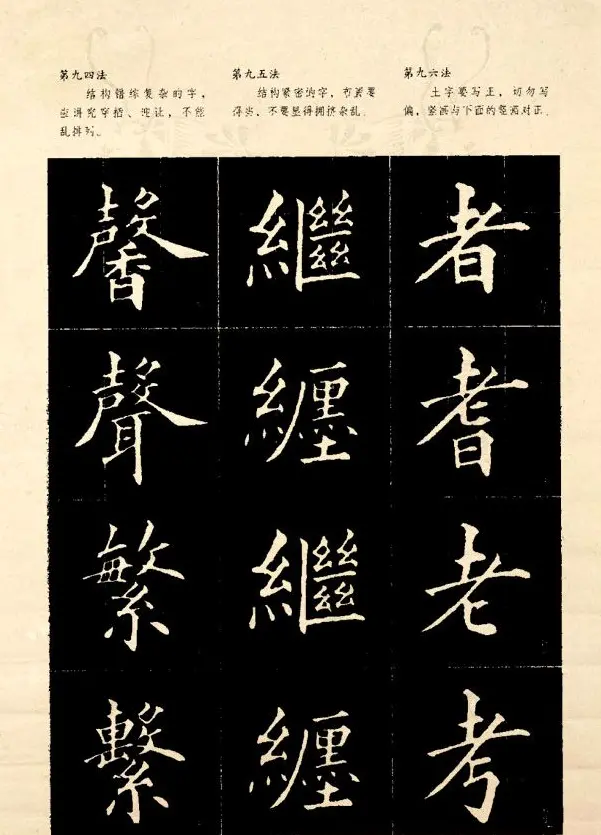 第九四法
结构错综复杂的字，
应讲究穿插、让，不能
乱排列。
第九五法
结构紧密的字，布置要
得当，不要显得拥挤杂乱。
第九六法
土字要写正，切勿写
偏，竖画与下面的竖画对正。
馨 繼 者
聲 纏 耆
繁 繼 老
繫 纏 考